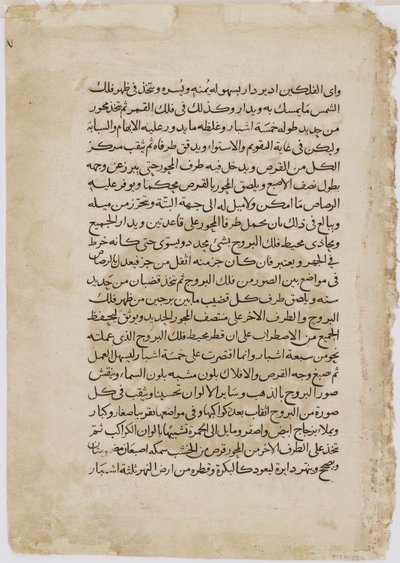 واى الفلكين ادير دار بسهولة يمنه ويسره ويتخذ فى ظهر فلك
الشمس ما يمسك به ويدار وكذلك فى فلك القمر ثم يتخذ محور
من حديد طوله خمسة اشبار وغلظه ما يدور عليه الابهام والسبابة
وليكن فى غاية التقويم والاستواء ويدقق طرفاه ثم يثقب مركز
الكل من القرص ويدخل فيه طرف المحور حتى يبرز عن وجهه
بطول نصف الاصبع ويلصق المحور بالقرص محكما ويوفر عليه
الرصاص ما امكن ولا ميل له الى جهة البتة ويتحرز من ميله
ويبالغ فى ذلك بان يحمل طرفا المحور على قاعدتين ويدار الجميع
ويحاذى محيط فلك البروج بشئ محدد ويسوى حتى كانه خرط
فى الجهر ويعتبر فان كان جزء منه اثقل من جزء فيعدل بالرصاص
فى مواضع بين الصور من فلك البروج ثم يتخذ قضبان من حديد
ستة ويلصق طرف كل قضيب ما بين برجين من ظهر فلك
البروج والطرف الاخر على منتصف المحور الحديد ويوثق ليحفظ
الجميع من الاضطراب على ان قطر محيط فلك البروج الذى عملته
نحو من سبعة اشبار وانما اقتصرت على خمسة اشبار ليسهل العمل
ثم صبغ وجه القرص والافلاك بلون مشبه بلون السماء وينقش
صور البروج بالذهب وساير الالوان تحسينا ويثقب فى كل
صورة من البروج اثقاب بعدد كواكبها وفى مواضعها تقريبا صغار وكبار
ويملاء بزجاج ابيض واصفر ومايل الى الحمرة تشبيها بالوان الكواكب ثم
يتخذ على الطرف الاخر من المحور قرص من الخشب سمكه اصبعان
ويصحح ويهندم دايرة ليعود كالبكرة وقطره من ارض النهر ثلثة اشبار